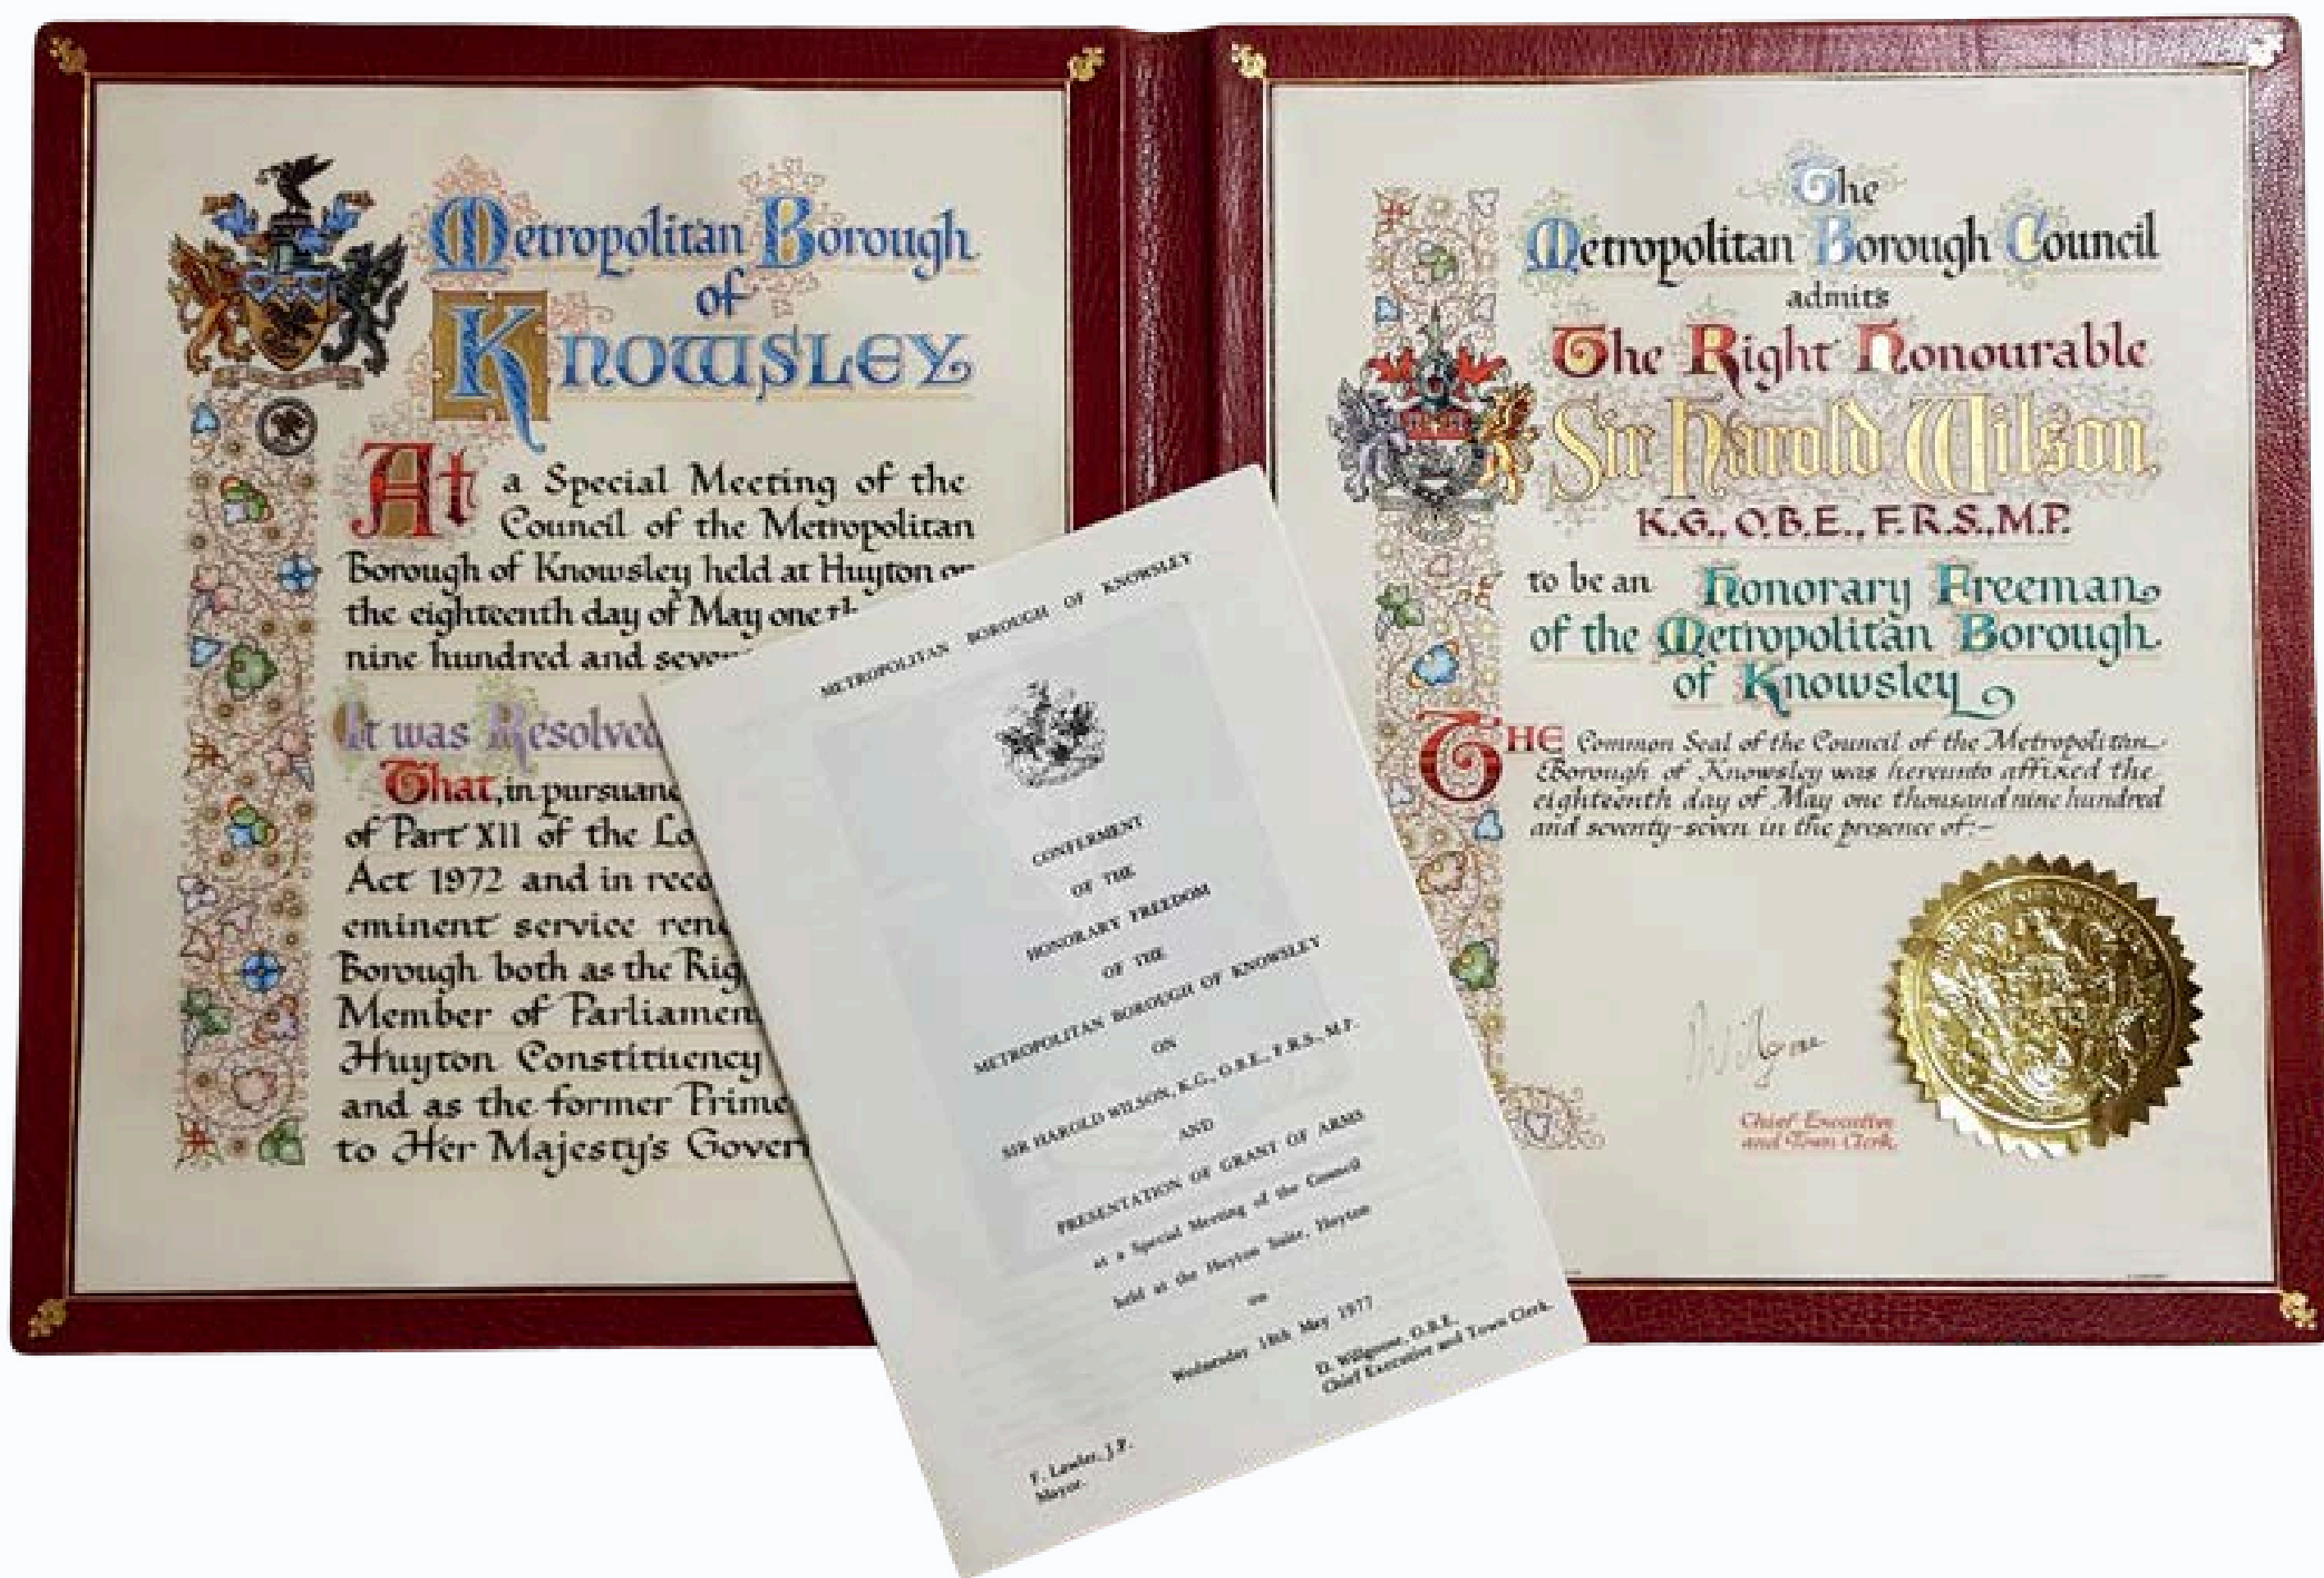 Metropolitan Borough
of
Knowsley
At a Special Meeting of the
Council of the Metropolitan
Borough of Knowsley held at Huyton on
the eighteenth day of May one th
nine hundred and seven
It was Resolved
That, in pursuanc
of Part XII of the Lo
Act 1972 and in reco
eminent service rend
Borough both as the Rig
Member of Parliamen
Huyton Constituency
and as the former Prime
to Her Majesty's Govern
METROPOLITAN BOROUGH OF KNOWSLEY
CONFERMENT
OF THE
HONORARY FREEDOM
OF THE
METROPOLITAN BOROUGH OF KNOWSLEY
ON
SIR HAROLD WILSON, K.G., O.B.E., F.R.S., M.P.
AND
PRESENTATION OF GRANT OF ARMS
at a Special Meeting of the Council
held at the Huyton Suite, Huyton
on
Wednesday 18th May 1977
D. Willgoose, O.B.E.
Chief Executive and Town Clerk.
F. Lawler, J.P.
Mayor.
The
Metropolitan Borough Council
admits
The Right Honourable
Sir Harold Wilson,
K.G., O.B.E., F.R.S., M.P.
to be an Honorary Freeman
of the Metropolitan Borough
of Knowsley
THE Common Seal of the Council of the Metropolitan
Borough of Knowsley was hereunto affixed the
eighteenth day of May one thousand nine hundred
and seventy-seven in the presence of:-
Chief Executive
and Town Clerk.